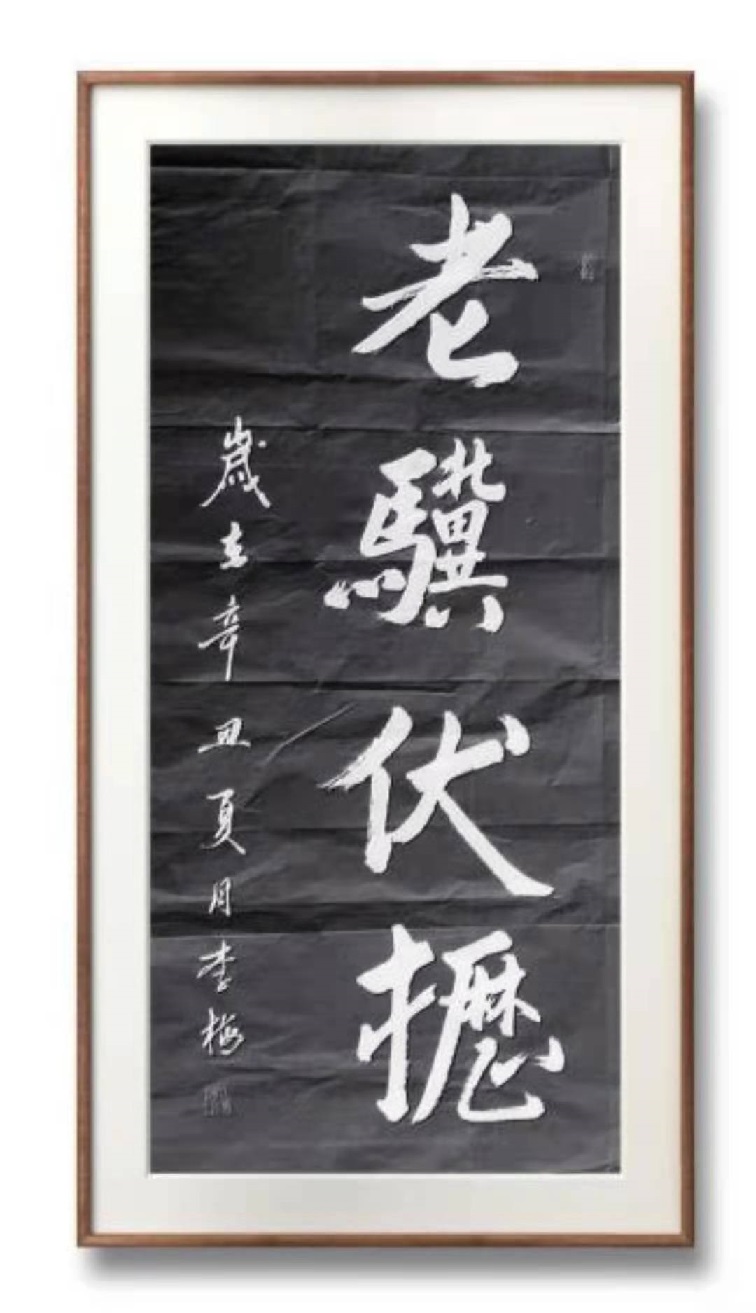 老驥伏櫪
歲在辛丑夏月李梅